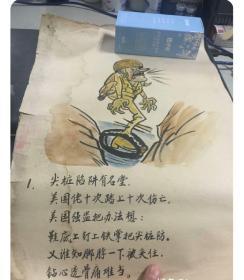 1. 尖桩陷阱有名堂,
美国佬十次踏上十次伤亡。
美国强盗把办法想:
鞋底上钉上铁掌把尖桩防。
又谁知脚脖一下被夹住,
钻心透骨痛难当。